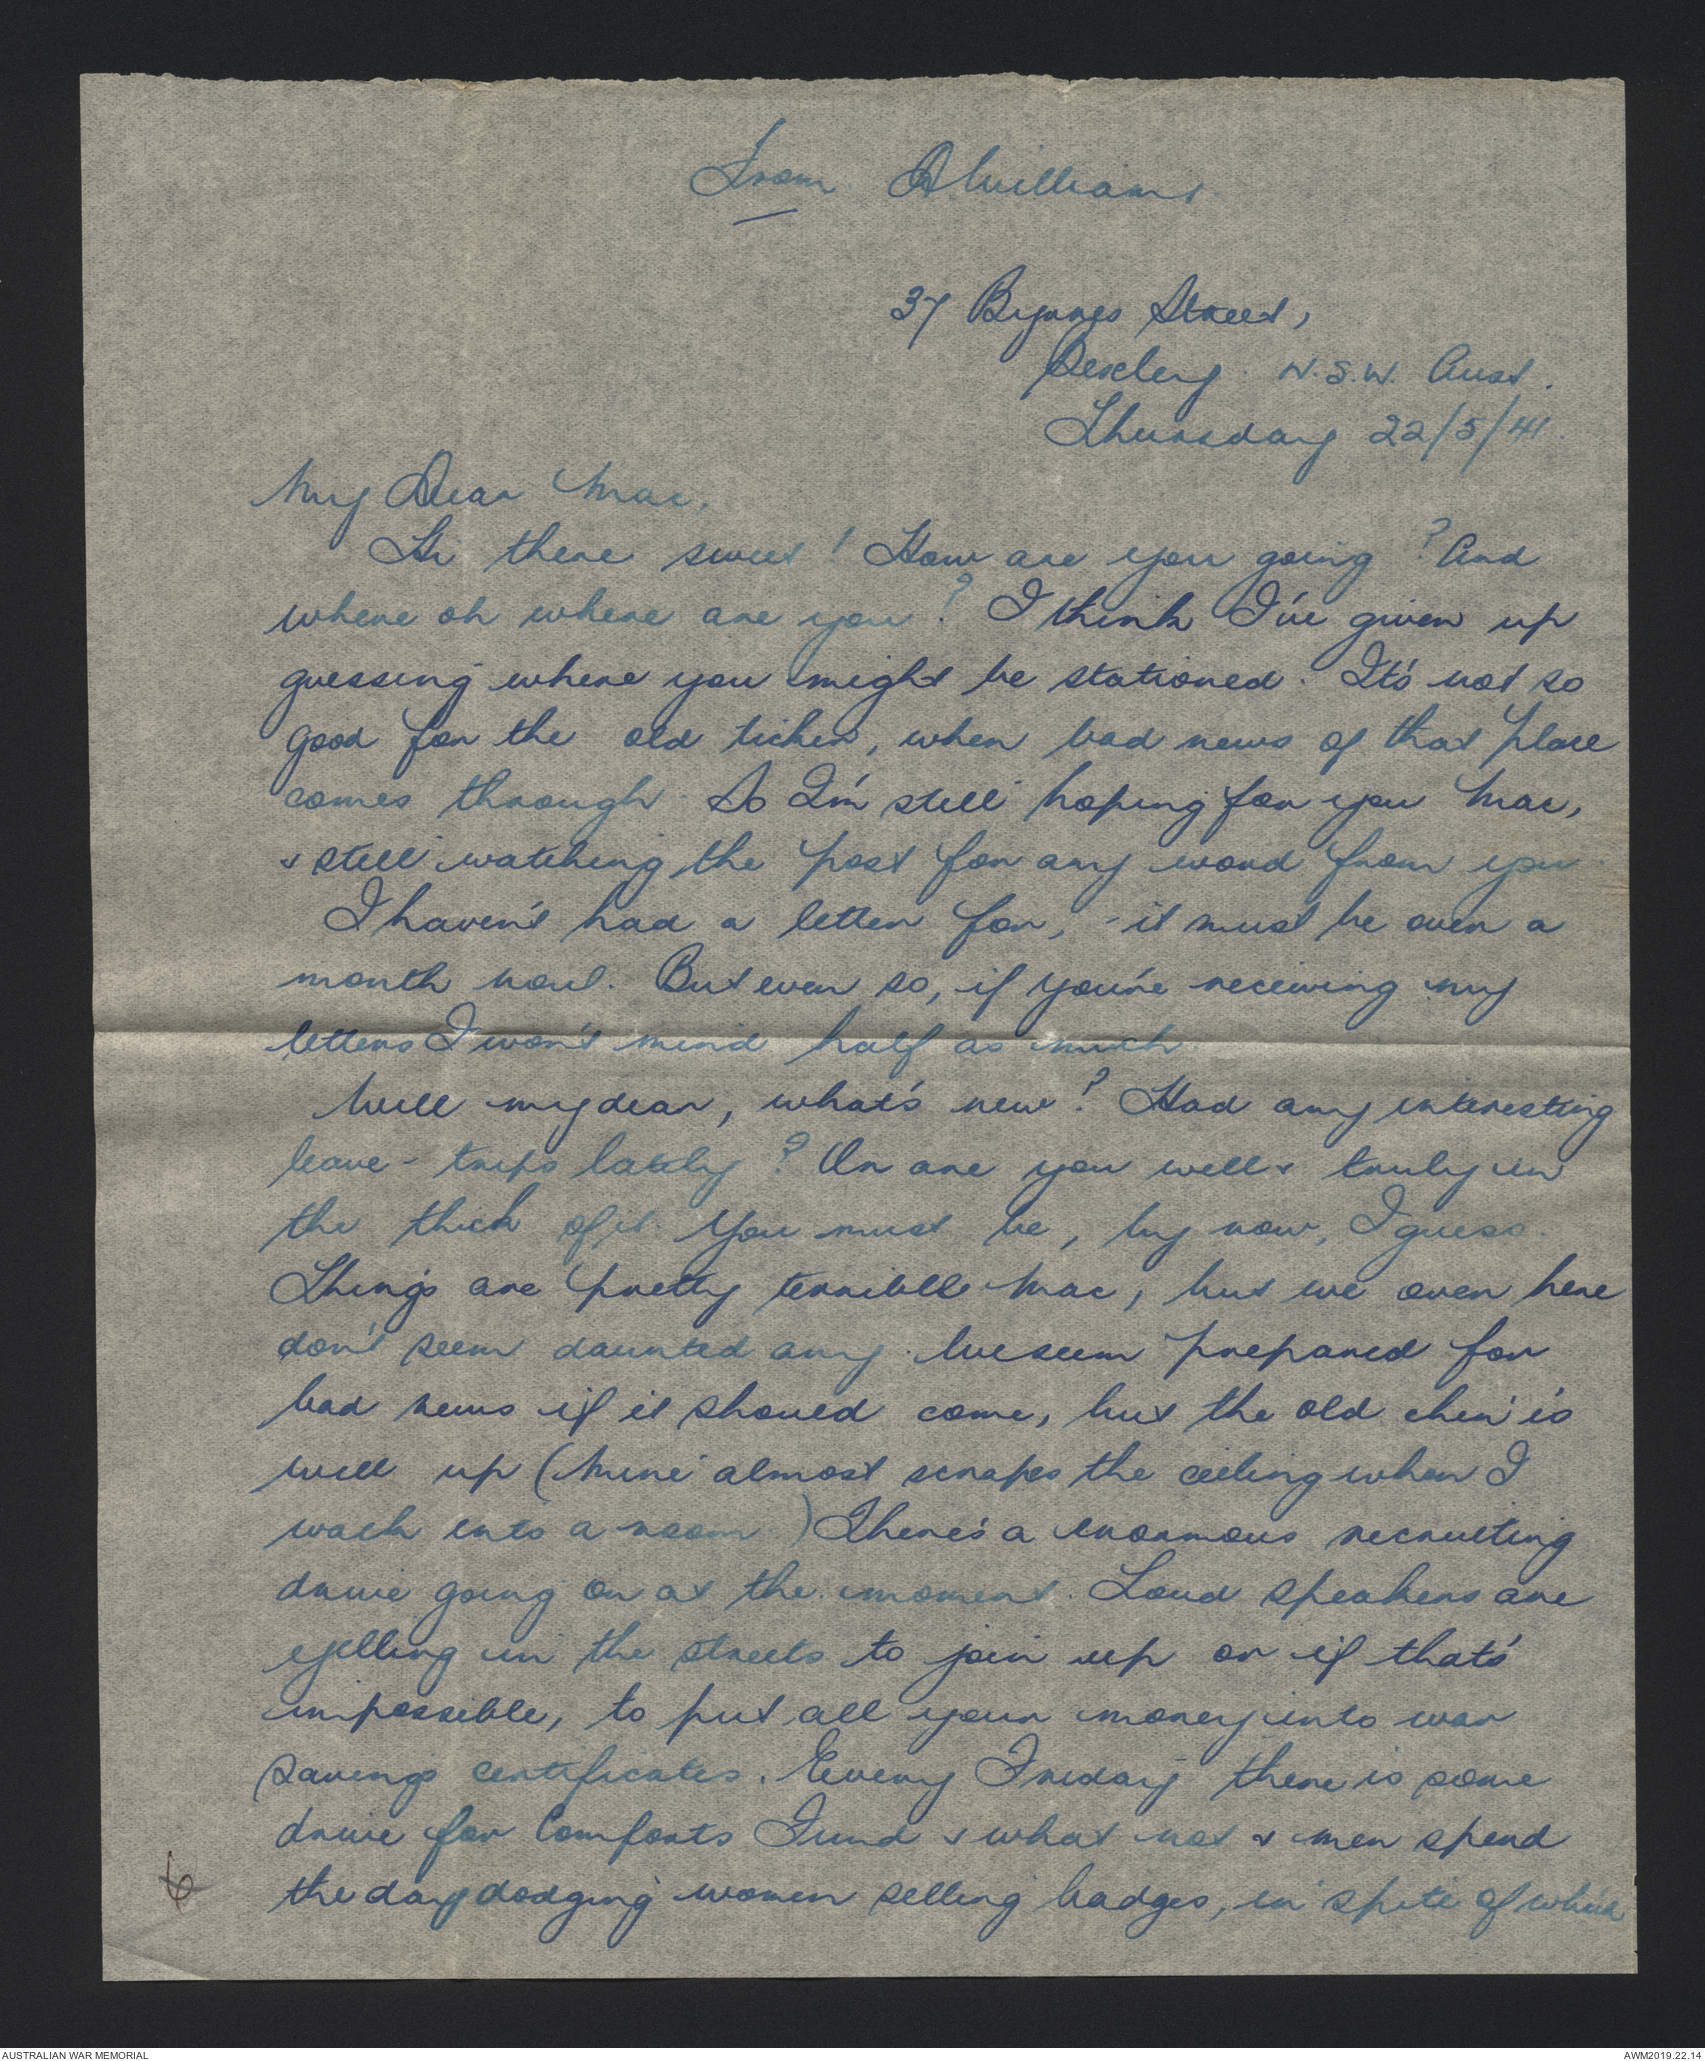 From A Williams
37 Byrnes Street,
Bexley. N.S.W. Aust.
Thursday 22/5/41.
My Dear Mac,
Hi there sweet! How are you going? And
where oh where are you? I think I've given up
guessing where you might be stationed. It's not so
good for the old ticker, when bad news of that place
comes through. So I'm still hoping for you Mac,
& still watching the post for any word from you
I haven't had a letter for, - it must be over a
month now. But even so, if you're receiving my
letters I won't mind half as much
Well my dear, what's new? Had any interesting
leave - trips lately? Or are you well & truly in
the thick of it. You must be, by now, I guess.
Things are pretty terrible Mac, but we over here
don't seem daunted any. We seem prepared for
bad news if it should come, but the old chin is
well up (Mine almost scrapes the ceiling when I
walk into a room) There's a enormous recruiting
drive going on at the moment. Loud speakers are
yelling in the streets to join up or if that's
impossible, to put all your money into war
savings certificates. Every Friday there is some
drive for Comforts Fund & what not & men spend
the day dodging women selling badges, in spite of which
6
AUSTRALIAN WAR MEMORIAL
AWM2019.22.14